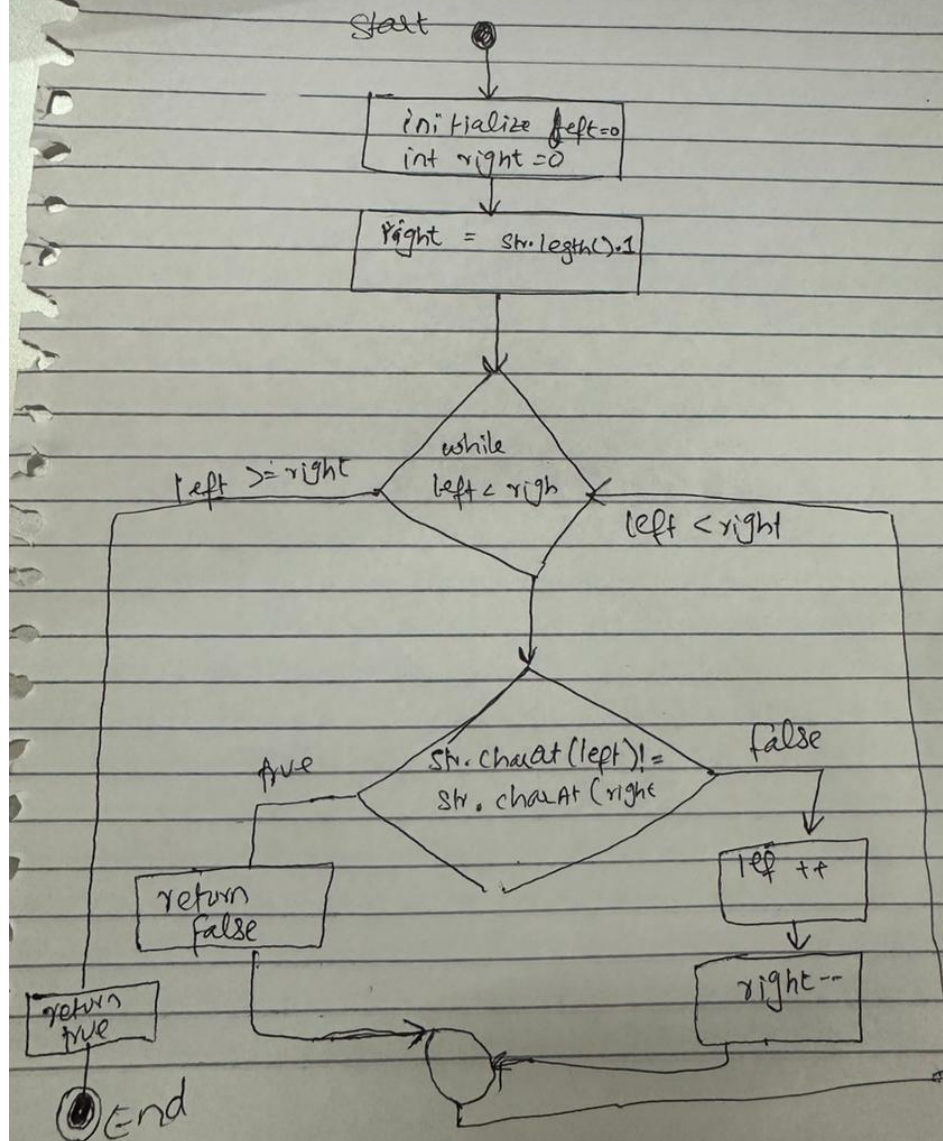 Start
initialize left=0
int right =0
right = str.legth().1
while
left < righ
left >= right
left < right
str.charAt(left)!=
str.charAt(right
true
false
return
false
lef ++
right--
return
true
End